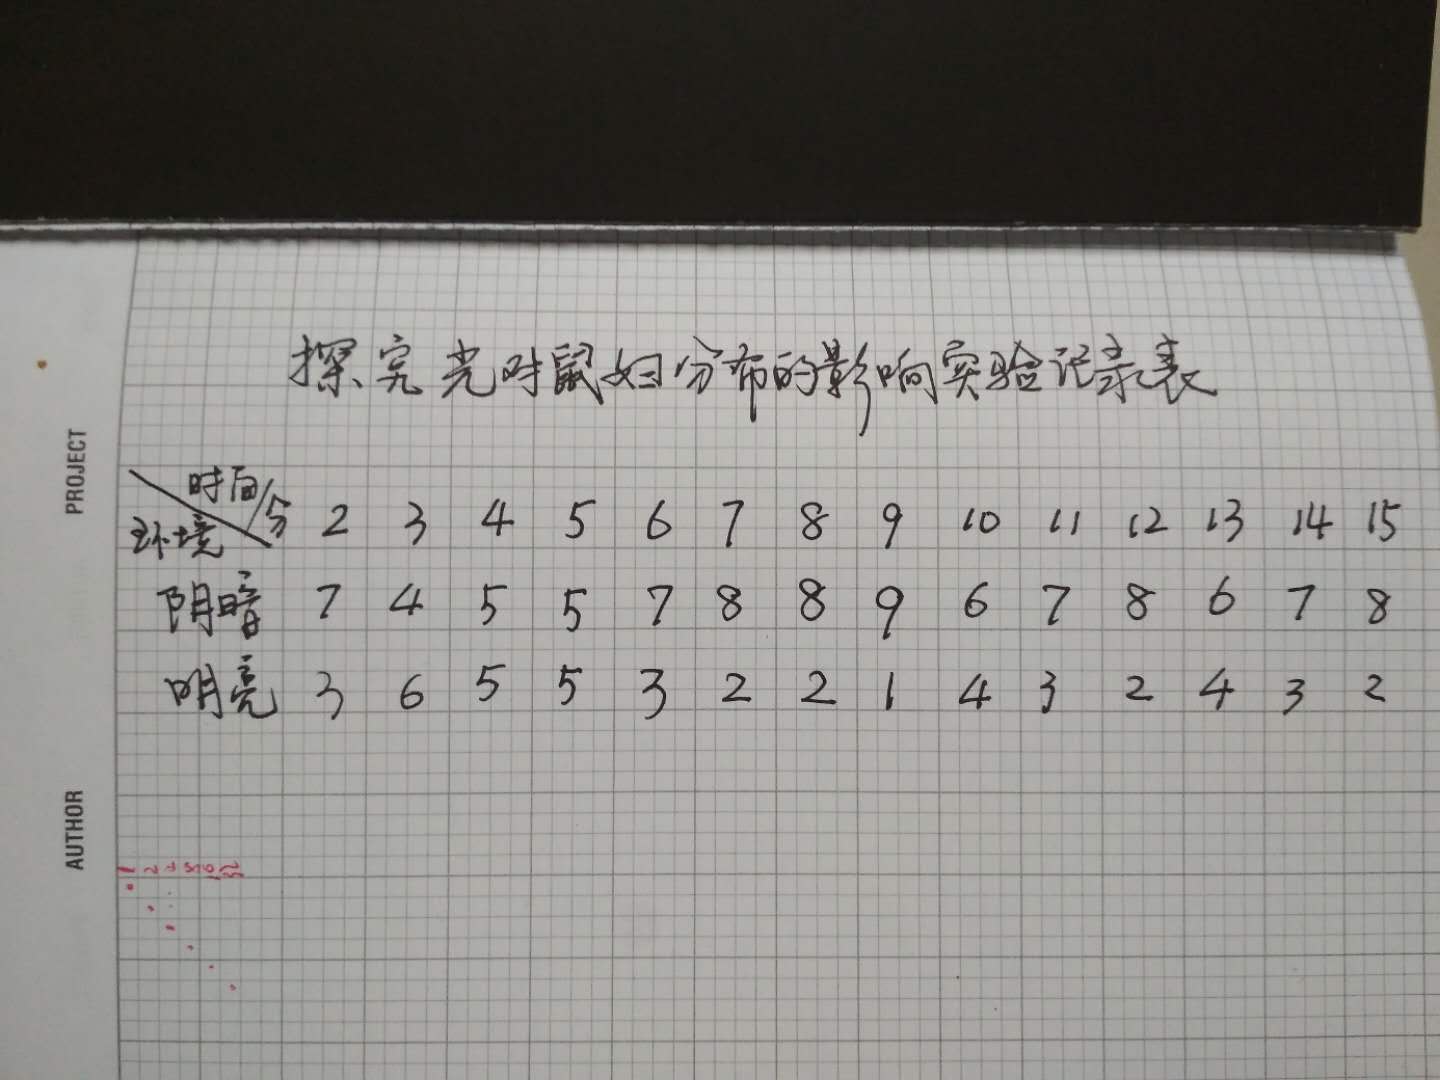 探究光对鼠妇分布的影响实验记录表
时间/分 2 3 4 5 6 7 8 9 10 11 12 13 14 15
环境
阴暗 7 4 5 5 7 8 8 9 6 7 8 6 7 8
明亮 3 6 5 5 3 2 2 1 4 3 2 4 3 2
PROJECT
AUTHOR